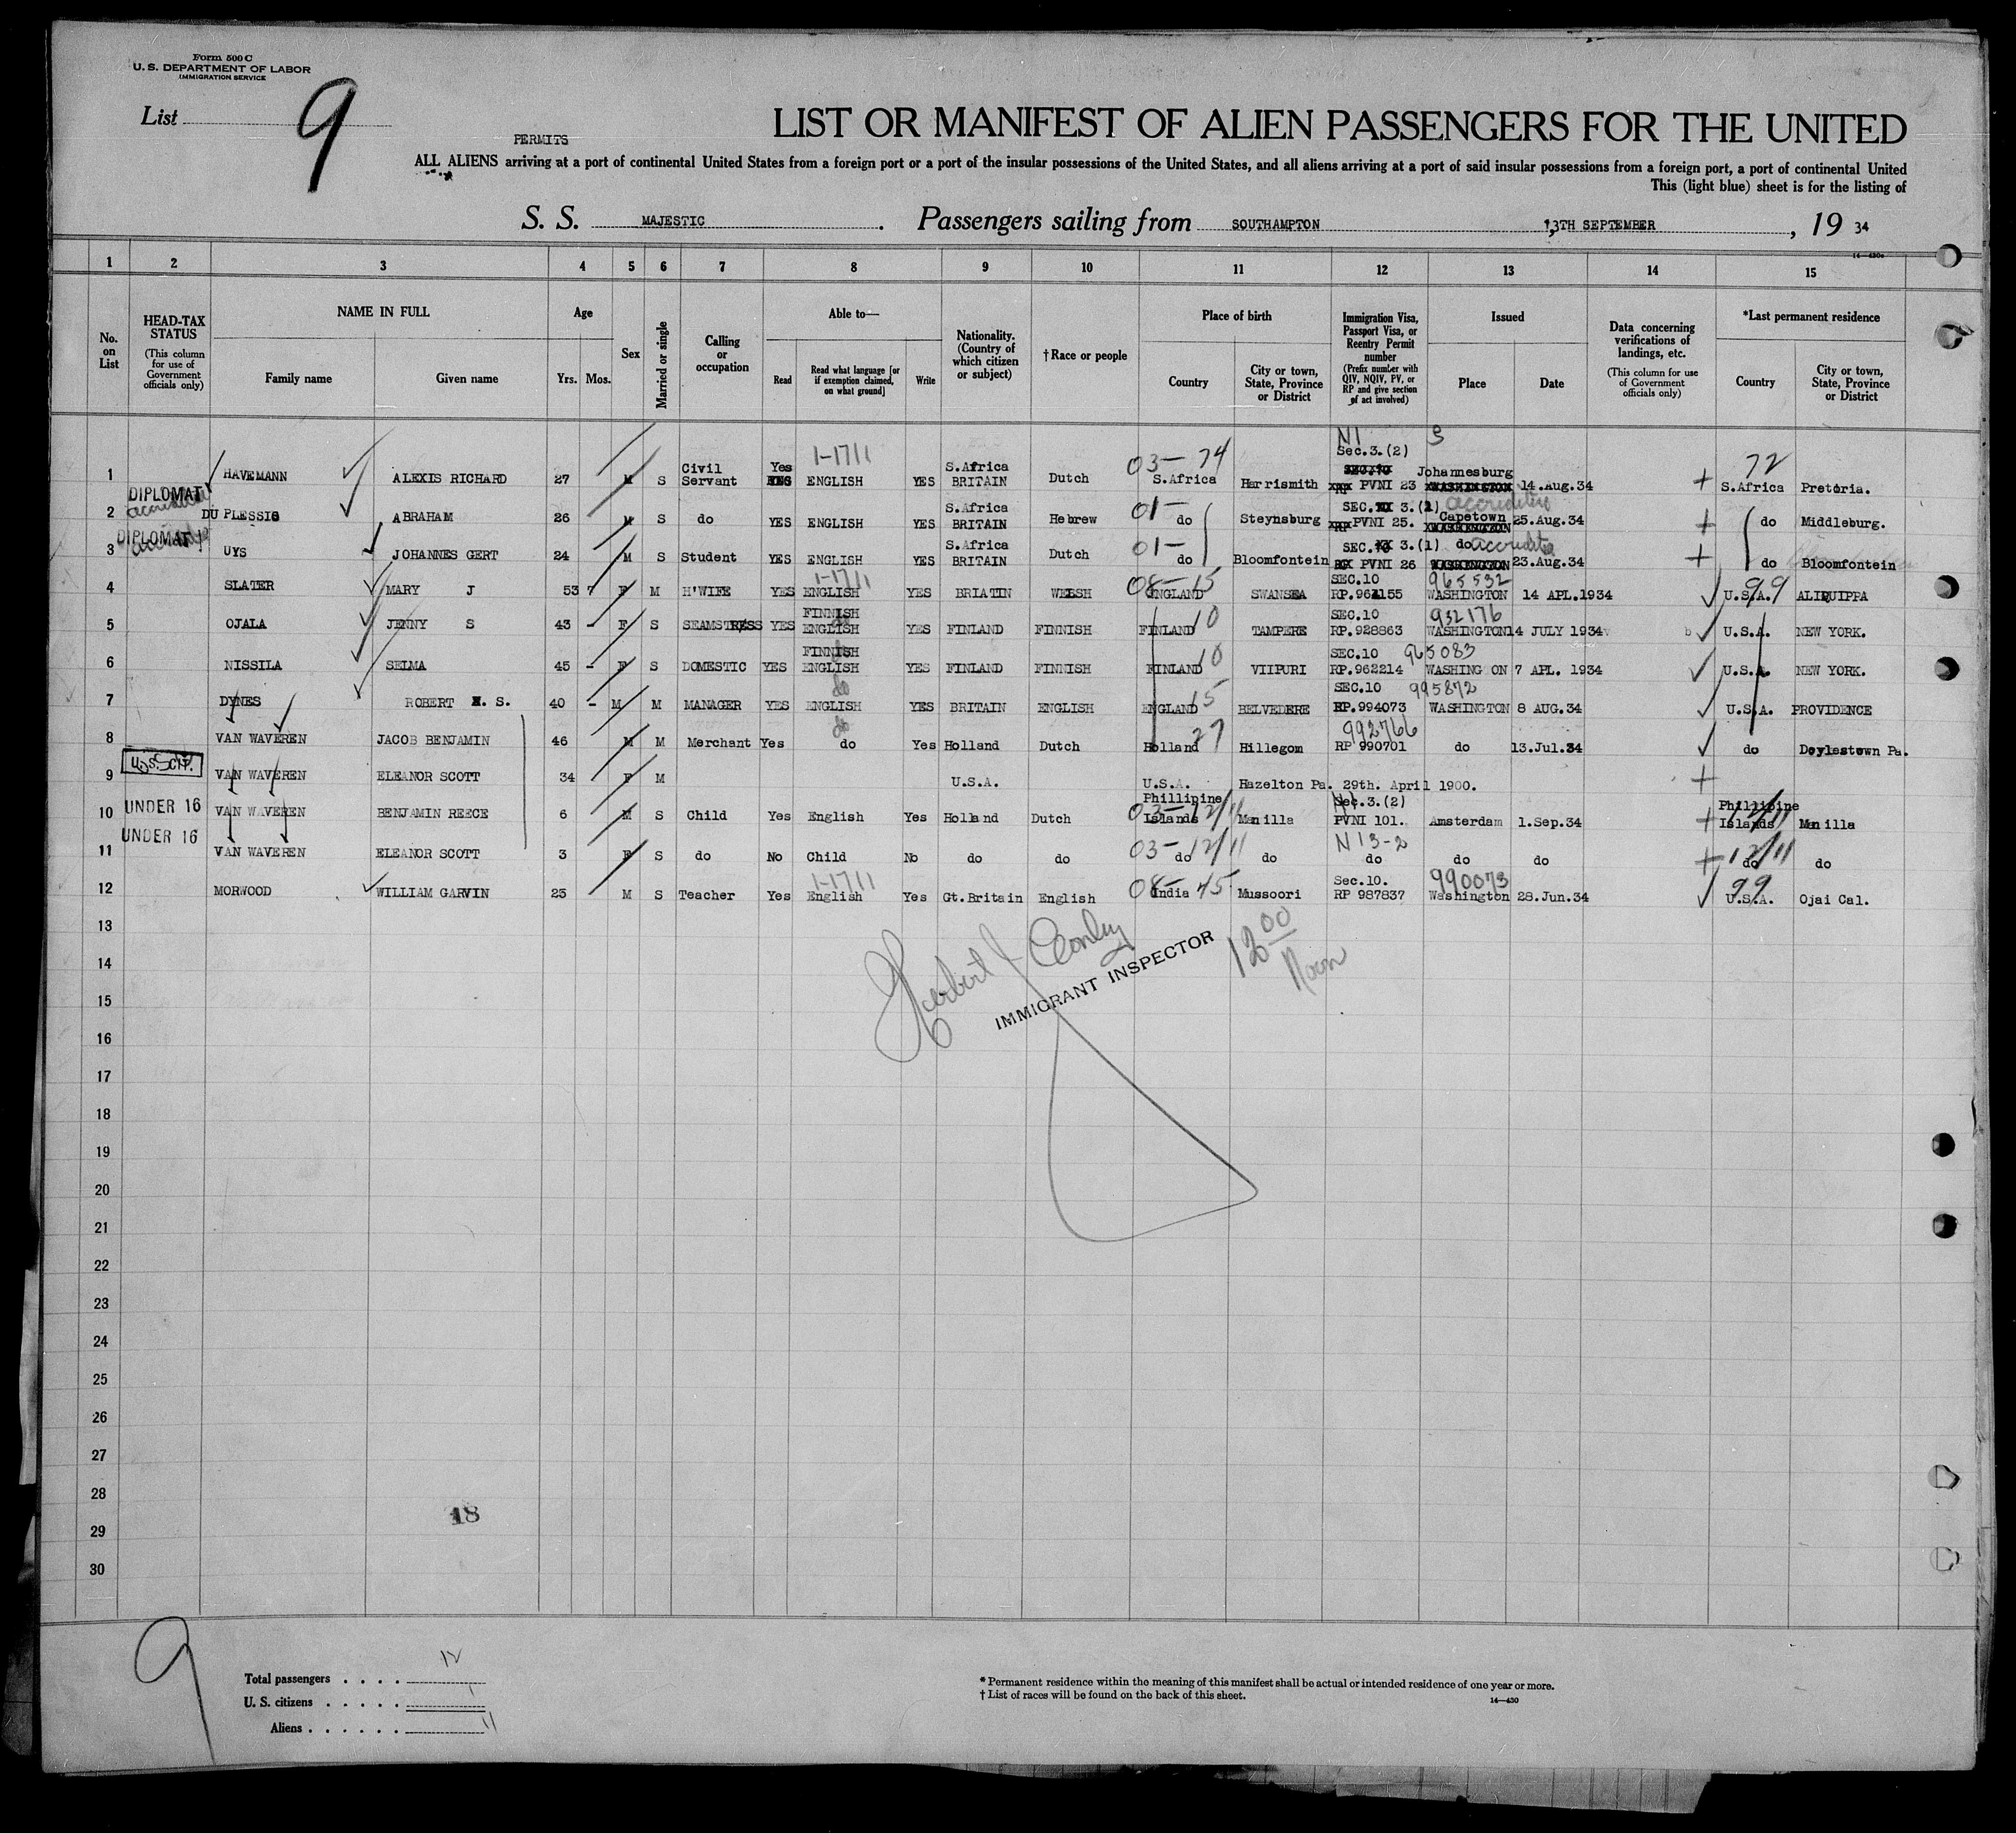 Form 500 C
U. S. DEPARTMENT OF LABOR
IMMIGRATION SERVICE
List 9
PERMITS
LIST OR MANIFEST OF ALIEN PASSENGERS FOR THE UNITED
ALL ALIENS arriving at a port of continental United States from a foreign port or a port of the insular possessions of the United States, and all aliens arriving at a port of said insular possessions from a foreign port, a port of continental United
This (light blue) sheet is for the listing of
S. S. MAJESTIC. Passengers sailing from SOUTHAMPTON 13TH SEPTEMBER, 19 34
14—430c
1 2 3 4 5 6 7 8 9 10 11 12 13 14 15
No. on List
HEAD-TAX STATUS (This column for use of Government officials only)
NAME IN FULL Family name Given name
Age Yrs. Mos.
Sex
Married or single
Calling or occupation
Able to— Read Read what language [or if exemption claimed, on what ground] Write
Nationality. (Country of which citizen or subject)
†Race or people
Place of birth Country City or town, State, Province or District
Immigration Visa, Passport Visa, or Reentry Permit number (Prefix number with QIV, NQIV, PV, or RP and give section of act involved)
Issued Place Date
Data concerning verifications of landings, etc. (This column for use of Government officials only)
*Last permanent residence Country City or town, State, Province or District
1 HAVEMANN ALEXIS RICHARD 27 M S Civil Servant Yes 1-1711 ENGLISH YES S.Africa BRITAIN Dutch 03-74 S.Africa Harrismith N1 Sec.3.(2) PVNI 23 Johannesburg 14.Aug.34 + 72 S.Africa Pretoria.
DIPLOMAT
2 DU PLESSIS ABRAHAM 26 M S do YES ENGLISH YES S.Africa BRITAIN Hebrew 01- do Steynsburg SEC. 3.(1) PVNI 25. Capetown 25.Aug.34 + do Middleburg.
DIPLOMAT
3 UYS JOHANNES GERT 24 M S Student YES ENGLISH YES S.Africa BRITAIN Dutch 01- do Bloomfontein SEC. 3.(1) PVNI 26 do 23.Aug.34 + do Bloomfontein
4 SLATER MARY J 53 F M H'WIFE YES 1-1711 ENGLISH YES BRIATIN WELSH 08-15 ENGLAND SWANSEA SEC.10 RP.961155 965532 WASHINGTON 14 APL.1934 U.S.A. 99 ALIQUIPPA
5 OJALA JENNY S 43 - F S SEAMSTRESS YES FINNISH ENGLISH YES FINLAND FINNISH FINLAND 10 TAMPERE SEC.10 RP.928863 932176 WASHINGTON14 JULY 1934 U.S.A. NEW YORK.
6 NISSILA SELMA 45 - F S DOMESTIC YES FINNISH ENGLISH YES FINLAND FINNISH FINLAND 10 VIIPURI SEC.10 RP.962214 965083 WASHING ON 7 APL. 1934 U.S.A. NEW YORK.
7 DYNES ROBERT H. S. 40 - M M MANAGER YES do ENGLISH YES BRITAIN ENGLISH ENGLAND 15 BELVEDERE SEC.10 RP.994073 995872 WASHINGTON 8 AUG.34 U.S.A. PROVIDENCE
8 VAN WAVEREN JACOB BENJAMIN 46 M M Merchant Yes do do Yes Holland Dutch Holland 27 Hillegom 992766 RP 990701 do 13.Jul.34 do Doylestown Pa.
U.S. CIT.
9 VAN WAVEREN ELEANOR SCOTT 34 F M U.S.A. U.S.A. Hazelton Pa. 29th. April 1900. +
UNDER 16
10 VAN WAVEREN BENJAMIN REECE 6 M S Child Yes English Yes Holland Dutch Phillipine Islands 03-12/11 Manilla Sec.3.(2) PVNI 101. Amsterdam 1.Sep.34 + Phillipine Islands 12/11 Manilla
UNDER 16
11 VAN WAVEREN ELEANOR SCOTT 3 F S do No Child No do do 03- do 12/11 do N 13-2 do do do + do 12/11 do
12 MORWOOD WILLIAM GARVIN 25 M S Teacher Yes 1-1711 English Yes Gt.Britain English 08- India 45 Mussoori Sec.10. RP 987837 990073 Washington 28.Jun.34 99 U.S.A. Ojai Cal.
13
Herbert J Conley
IMMIGRANT INSPECTOR
12 00 Noon
14
15
16
17
18
19
20
21
22
23
24
25
26
27
28
18
29
30
9
Total passengers . . . . 12
U. S. citizens . . . . . 1
Aliens . . . . . . 11
* Permanent residence within the meaning of this manifest shall be actual or intended residence of one year or more.
† List of races will be found on the back of this sheet.
14—430